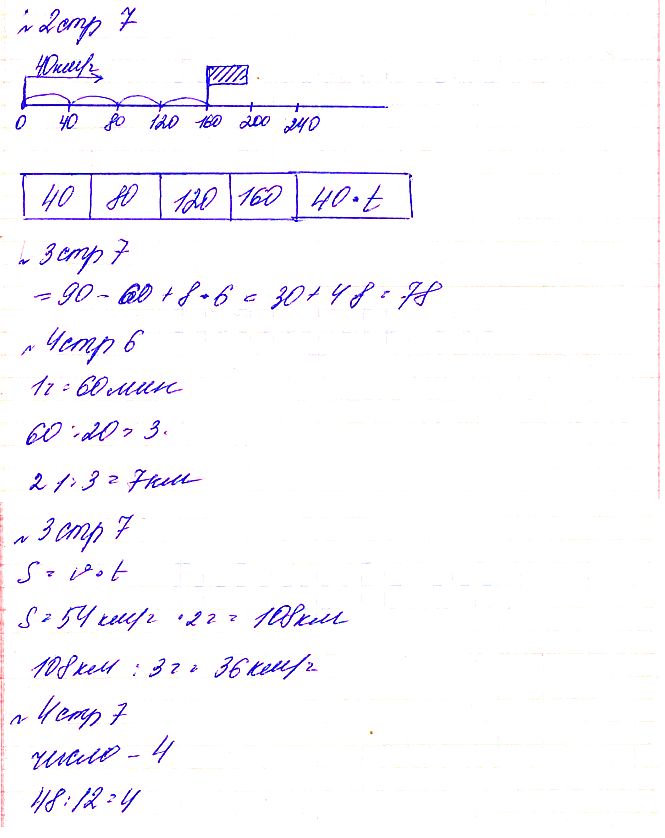 № 2 стр 7
40 км/ч
0 40 80 120 160 200 240
40 80 120 160 40 · t
№ 3 стр 7
= 90 - 60 + 8 · 6 = 30 + 48 = 78
№ 4 стр 6
1ч = 60 мин
60 : 20 = 3.
21 : 3 = 7 км
№ 3 стр 7
S = v · t
S = 54 км/ч · 2ч = 108 км
108 км : 3ч = 36 км/ч
№ 4 стр 7
число - 4
48 : 12 = 4